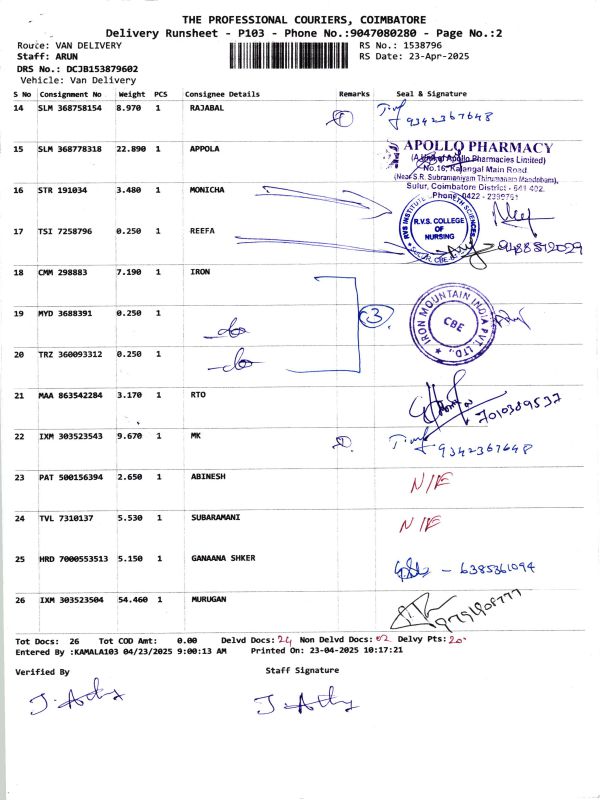 THE PROFESSIONAL COURIERS, COIMBATORE
Delivery Runsheet - P103 - Phone No.:9047080280 - Page No.:2
Route: VAN DELIVERY RS No.: 1538796
Staff: ARUN RS Date: 23-Apr-2025
DRS No.: DCJB153879602
Vehicle: Van Delivery
S No Consignment No Weight PCS Consignee Details Remarks Seal & Signature
14 SLM 368758154 8.970 1 RAJABAL 1 9342367648
15 SLM 368778318 22.890 1 APPOLA
APOLLO PHARMACY
(A Unit of Apollo Pharmacies Limited)
No.16, Kalangal Main Road
(Near S.R. Subramaniyam Thirumanam Mandabam),
Sulur, Coimbatore District - 641 402.
Phone: 0422 - 2339751
16 STR 191034 3.480 1 MONICHA
R.V.S. COLLEGE
OF
NURSING
17 TSI 7258796 0.250 1 REEFA 9488572029
18 CMM 298883 7.190 1 IRON
IRON MOUNTAIN INDIA PVT. LTD.,
CBE
19 MYD 3688391 0.250 1 3
do
20 TRZ 360093312 0.250 1
do
21 MAA 863542284 3.170 1 RTO 7010389537
22 IXM 303523543 9.670 1 MK 1 9342367648
23 PAT 500156394 2.650 1 ABINESH N/E
24 TVL 7310137 5.530 1 SUBARAMANI N/E
25 HRD 7000553513 5.150 1 GANAANA SHKER - 6385361094
26 IXM 303523504 54.460 1 MURUGAN
Tot Docs: 26 Tot COD Amt: 0.00 Delvd Docs: 24 Non Delvd Docs: 02 Delvy Pts: 20
Entered By :KAMALA103 04/23/2025 9:00:13 AM Printed On: 23-04-2025 10:17:21
Verified By Staff Signature